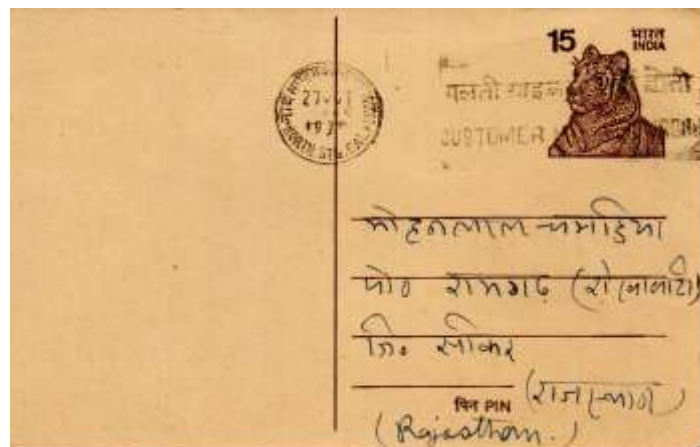 15 भारत
INDIA
गलती ग्राहक
CUSTOMER
NORTH
मोहनलाल चमड़िया
पो० रामगढ़ (शेखावाटी)
जि० सीकर
पिन PIN (राजस्थान)
(Rajasthan.)